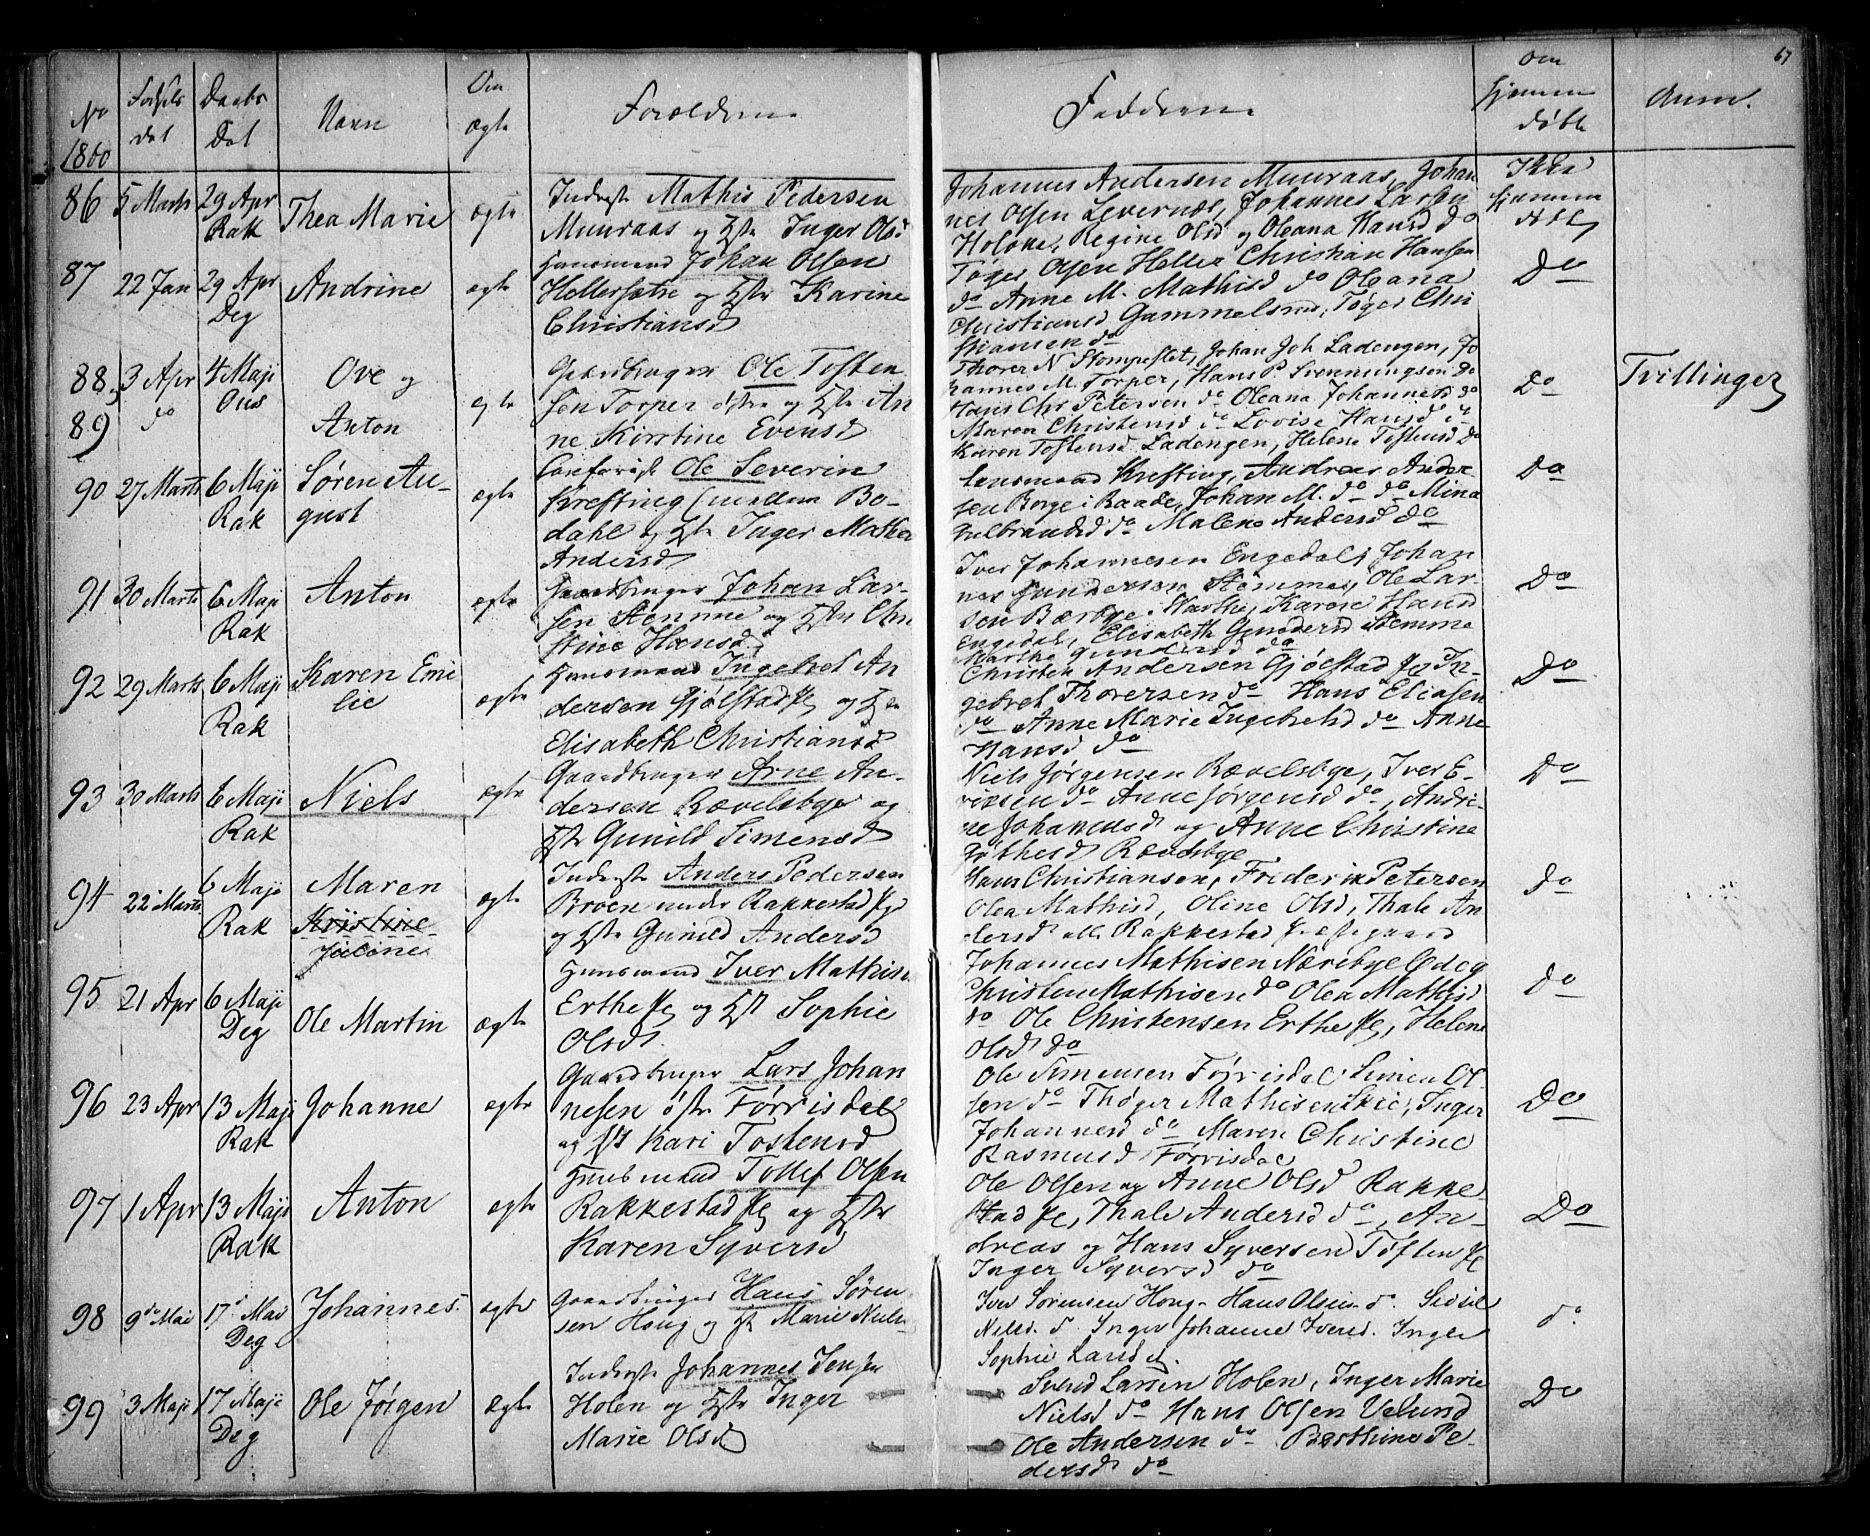 67
No
1860
Fødsels
dat
Daabs
Dat
Navn
Om
ægte
Forældrene
Fadderne
om
hjemme
døbt
Anm.
86
5 Marts
29 Apr
Rak
Thea Marie
ægte
Inderste Mathis Pedersen
Muuraas og Hstr Inger Olsd
Johannes Andersen Muuraas, Johan
nes Olsen Levernæs, Johannes Larsen
Holøne, Regine Olsd og Oleana Hansd do
Ikke
hjemme
døbt
87
22 Jan
29 Apr
Deg
Andrine
ægte
Huusmand Johan Olsen
Hellersætre og Hstr Karine
Christiansd
Tøger Olsen Heller Christian Hansen
do Anne M. Mathisd do Oleana
Christiansd Gammelsrud, Tøger Chri
stiansen do
Do
88,
89
3 Apr
do
4 Maji
Ous
Ove og
Anton
ægte
Gaardbruger Ole Tosten
sen Torper østre og Hstr An
ne Kirstine Evensd
Thorer N Stompeslet, Johan Joh Ladengen, Jo
hannes M. Torper, Hans P. Svenningsen do
Hans Chr Petersen do Oleana Johannesd do
Maren Christensd do Lovise Hansd do
Karen Tostensd Ladengen, Helene Tostensd do
Do
Tvillinger
90
27 Marts
6 Maji
Rak
Søren Au-
gust
ægte
Ole Severin
Krefting (mellem Bo-
dahl og Hstr Inger Mathea
Andersd
Lensmand Krefting, Andreas Ander
sen Borge i Raade, Johan M. do do Mina
Gulbrandsd do Malene Andersd do
Do
91
30 Marts
6 Maji
Rak
Anton
ægte
Gaardbruger Johan Lar-
sen Stemme og Hstr Chri
stine Hansd
Iver Johannesen Engedal, Johan
nes Gundersen Stemme, Ole Lar
sen Bærbye Marthe, Karine Hansd
Engedal, Elisabeth Gundersd Stemme
Marthe Gundersd do
Do
92
29 Marts
6 Maji
Rak
Karen Emi
lie
ægte
Huusmand Ingebret An
dersen Gjølstad Eje og Hstr
Elisabeth Christiansd
Christen Andersen Gjølstad Eje In-
gebret Thoversen do Hans Eliasen
do Anne Marie Ingebretsd do Anne
Hansd do
Do
93
30 Marts
6 Maji
Rak
Niels
ægte
Gaardbruger Arne An-
dersen Rævelsbye og
Hstr Gunild Simensd
Niels Jørgensen Rævelsbye, Iver E-
riksen do Anne Jørgensd do, Andri-
ne Johannesd og Anne Christine
Gøthesd Rævelsbye
Do
94
22 Marts
6 Maji
Rak
Maren
Kristine
Juline
ægte
Inderste Anders Pedersen
Broen under Rakkestad Pgd
og Hstr Gunild Andersd
Hans Christiansen, Frederik Petersen
Olea Mathisd, Oline Olsd, Thale An
dersd alle Rakkestad Præstegaard
do
95
21 Apr
6 Maji
Deg
Ole Martin
ægte
Huusmand Iver Mathisen
Erthe Eje og Hstr Sophie
Olsd
Johannes Mathisen Nærebye Ødeg
Christen Mathisen do Olea Mathisd
do Ole Christensen Erthe Eje, Helene
Olsd do
do
96
23 Apr
13 Maji
Rak
Johanne
ægte
Gaardbruger Lars Johan
nesen østre Førrisdal
og Hst Kari Tostensd
Ole Simensen Førrisdal Simen Ol
sen do Thøger Mathisen Skie, Inger
Johannesd do Maren Christine
Rasmusd Førrisdal
Do
97
1 Apr
13 Maji
Rak
Anton
ægte
Huusmand Tollef Olsen
Rakkestad Eje og Hstr
Karen Syversd
Ole Olsen og Anne Olsd Rakke-
stad Eje, Thale Andersd do, An-
dreas og Hans Syversen Tøften Eje
Inger Syversd do
Do
98
9de Mai
17de Mai
Deg
Johannes
ægte
Gaardbruger Hans Søren
sen Houg og Hst Marie Niels
Iver Sørensen Houg - Hans Olsen do. Sidsel
Nielsd. do Inger Johanne Iversd. Inger
Sophie Larsd do.
do
99
3 Maji
17 Maji
Deg
Ole Jørgen
ægte
Inderste Johannes Jensen
Holen og Hstr Inger
Marie Olsd
Svend Larsen Holen, Inger Marie
Nielsd do Hans Olsen Velund
Ole Andersen do Berthine Pe-
dersd do
Do